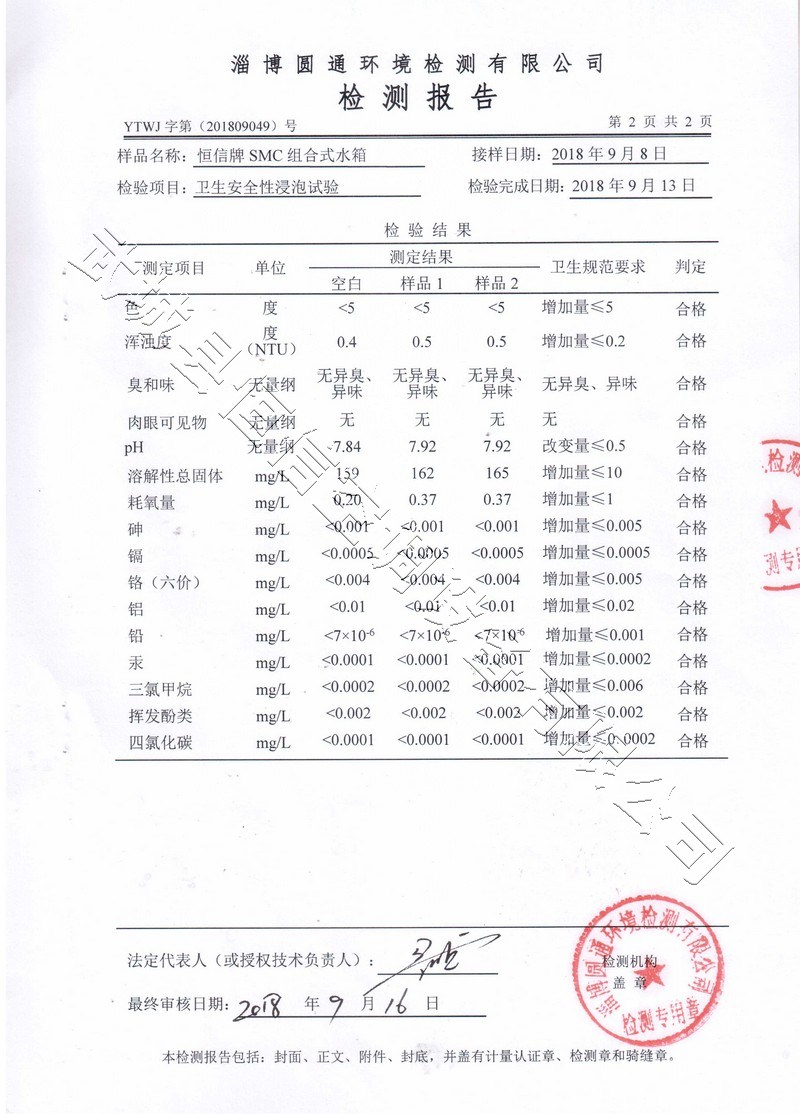 淄博圆通环境检测有限公司
检测报告
YTWJ 字第（201809049）号 第 2 页 共 2 页
样品名称：恒信牌 SMC 组合式水箱 接样日期：2018 年 9 月 8 日
检验项目：卫生安全性浸泡试验 检验完成日期：2018 年 9 月 13 日
检 验 结 果
测定项目 单位 测定结果 卫生规范要求 判定
空白 样品 1 样品 2
色 度 <5 <5 <5 增加量≤5 合格
浑浊度 度（NTU） 0.4 0.5 0.5 增加量≤0.2 合格
臭和味 无量纲 无异臭、异味 无异臭、异味 无异臭、异味 无异臭、异味 合格
肉眼可见物 无量纲 无 无 无 无 合格
pH 无量纲 7.84 7.92 7.92 改变量≤0.5 合格
溶解性总固体 mg/L 159 162 165 增加量≤10 合格
耗氧量 mg/L 0.20 0.37 0.37 增加量≤1 合格
砷 mg/L <0.001 <0.001 <0.001 增加量≤0.005 合格
镉 mg/L <0.0005 <0.0005 <0.0005 增加量≤0.0005 合格
铬（六价） mg/L <0.004 <0.004 <0.004 增加量≤0.005 合格
铝 mg/L <0.01 <0.01 <0.01 增加量≤0.02 合格
铅 mg/L <7×10⁻⁶ <7×10⁻⁶ <7×10⁻⁶ 增加量≤0.001 合格
汞 mg/L <0.0001 <0.0001 <0.0001 增加量≤0.0002 合格
三氯甲烷 mg/L <0.0002 <0.0002 <0.0002 增加量≤0.006 合格
挥发酚类 mg/L <0.002 <0.002 <0.002 增加量≤0.002 合格
四氯化碳 mg/L <0.0001 <0.0001 <0.0001 增加量≤0.0002 合格
检测
测专用
法定代表人（或授权技术负责人）：
淄博圆通环境检测有限公司
检测机构
盖 章
检测专用章
最终审核日期：2018 年 9 月 16 日
本检测报告包括：封面、正文、附件、封底，并盖有计量认证章、检测章和骑缝章。